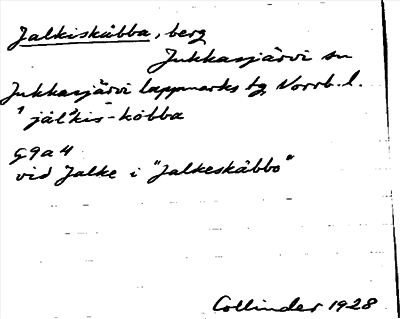 Jalkiskåbba, berg
Jukkasjärvi sn
Jukkasjärvi lappmarks tg, Norrb. l.
'jäl'kis-kòbba
G9a4
vid Jalke i "Jalkeskåbbo"
Collinder 1928